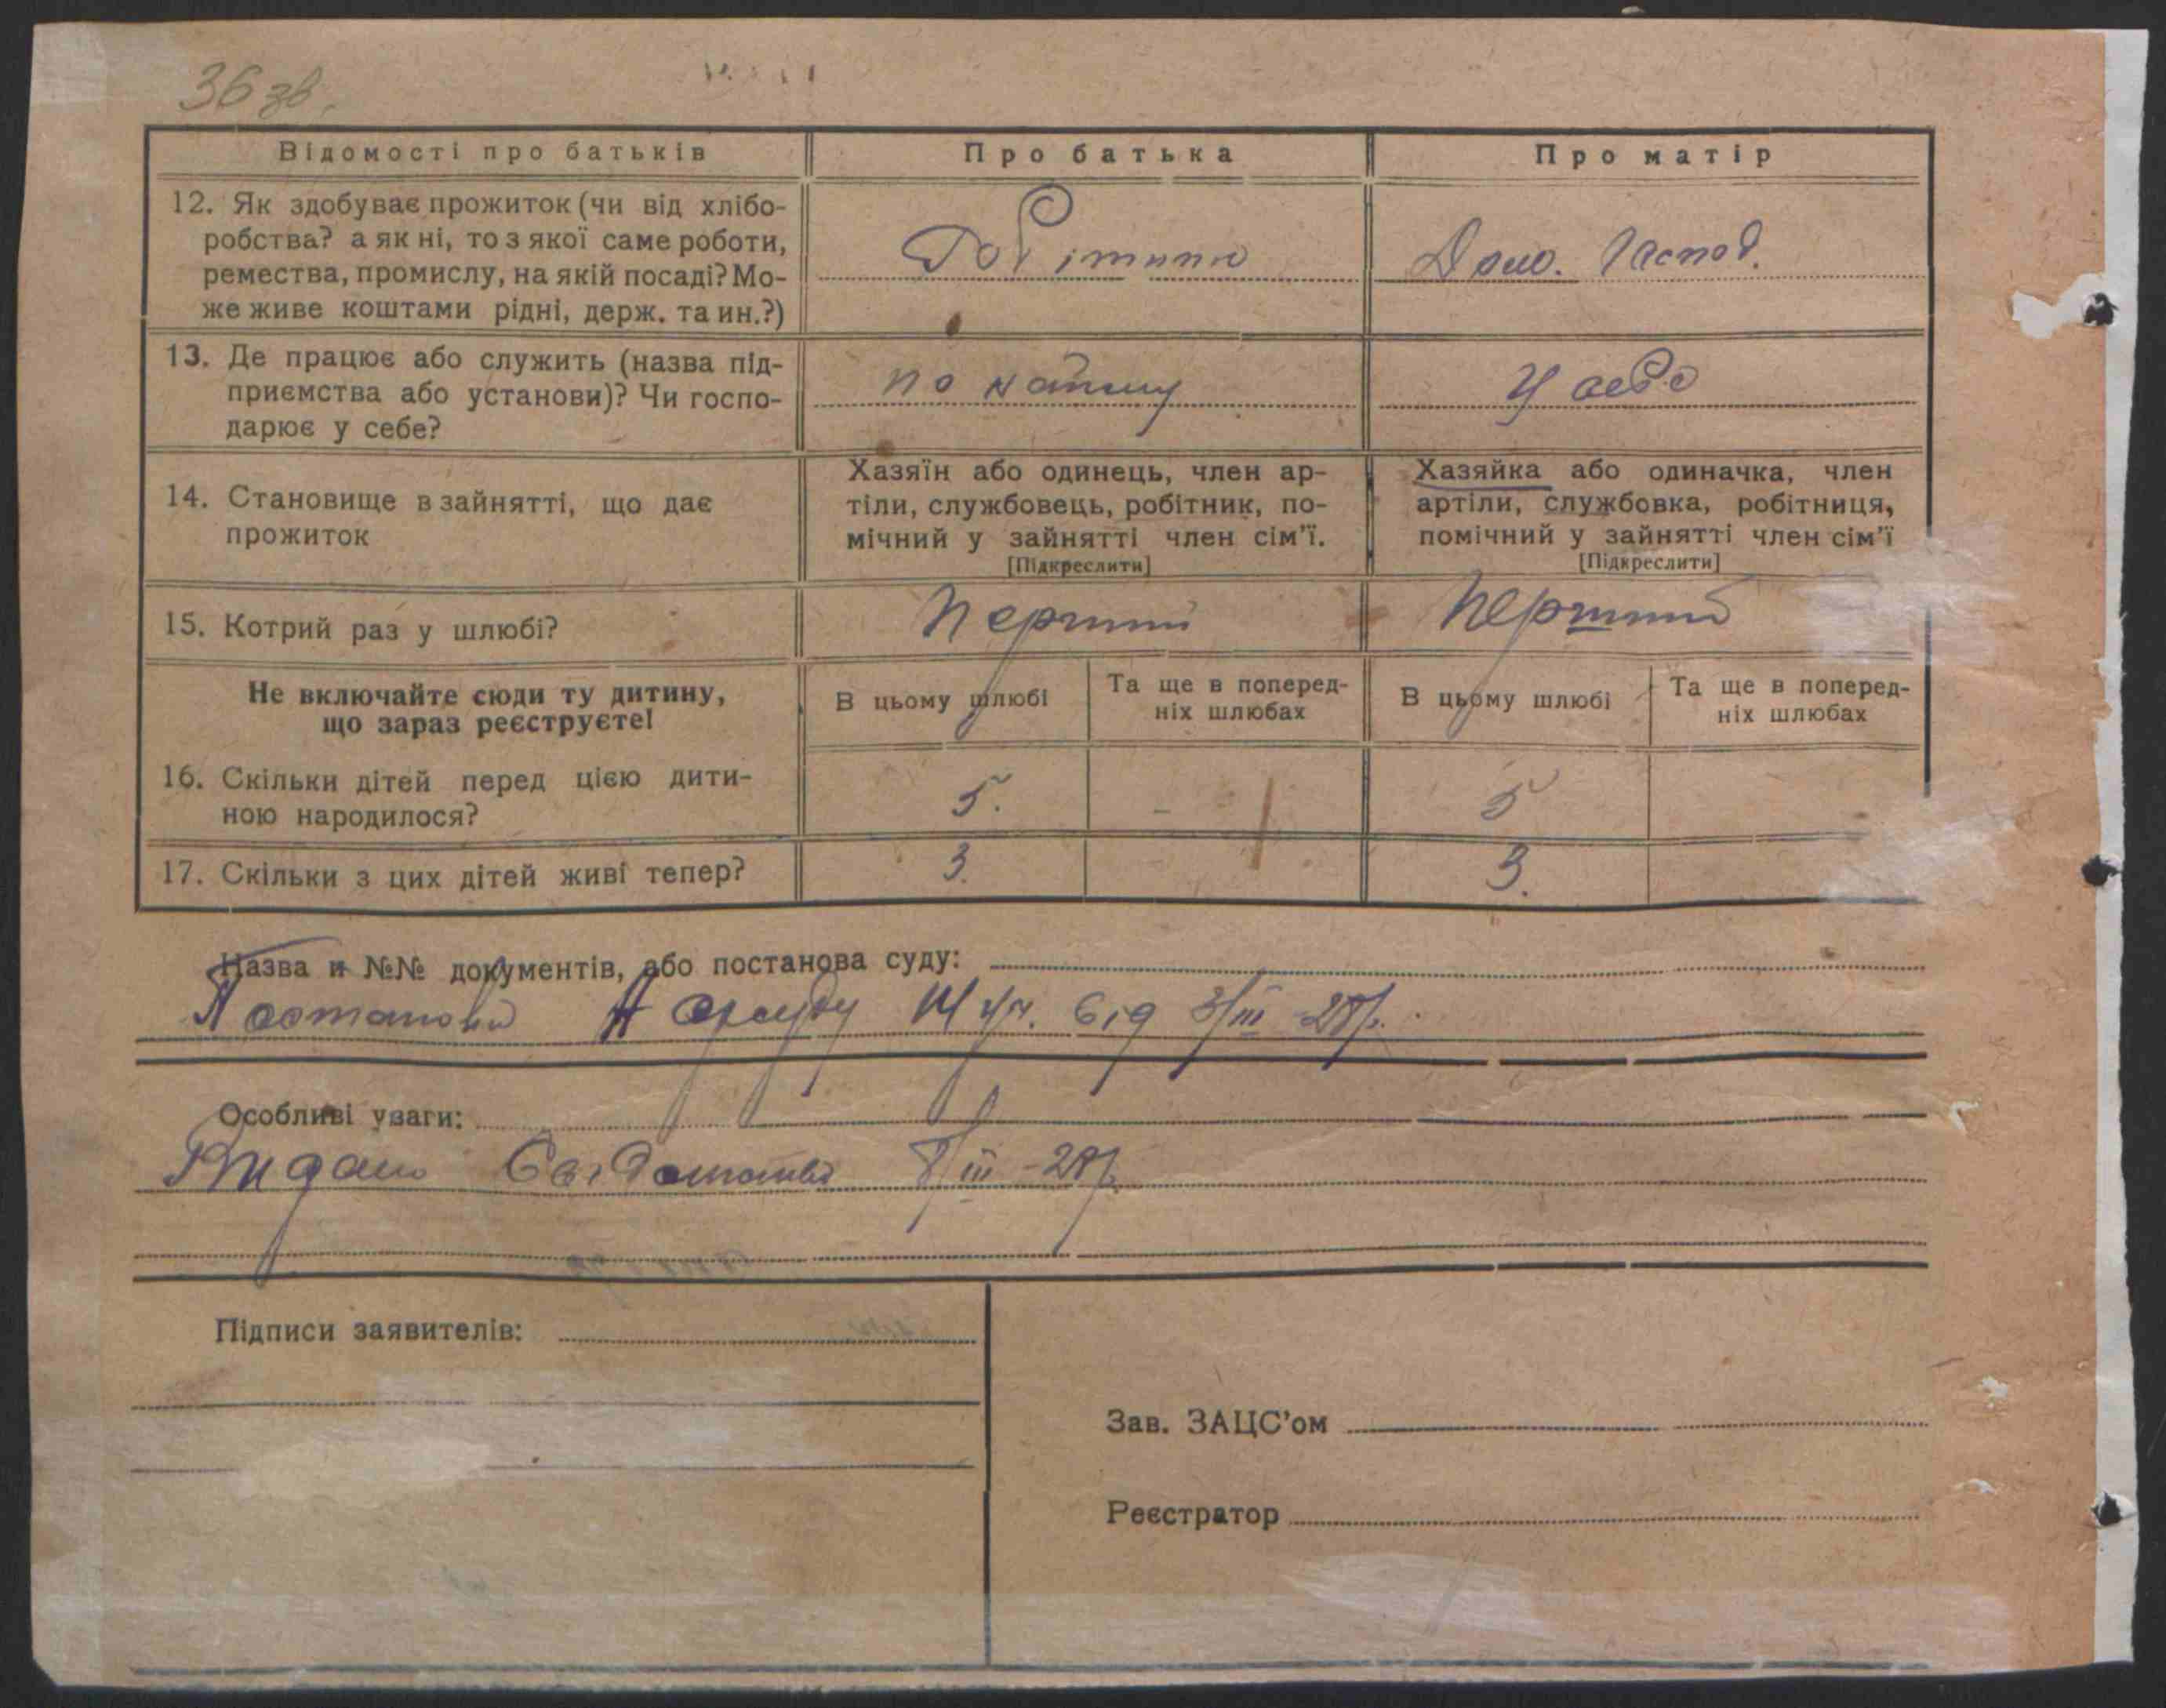 36 зв.
Відомості про батьків
Про батька
Про матір
12. Як здобуває прожиток (чи від хлібо-
робства? а як ні, то з якої саме роботи,
ремества, промислу, на якій посаді? Мо-
же живе коштами рідні, держ. та ин.?)
Робітник
Дом. Господ.
13. Де працює або служить (назва під-
приємства або установи)? Чи госпо-
дарює у себе?
по найму
У себе
14. Становище в зайнятті, що дає
прожиток
Хазяїн або одинець, член ар-
тіли, службовець, робітник, по-
мічний у зайнятті член сім'ї.
[Підкреслити]
Хазяйка або одиначка, член
артіли, службовка, робітниця,
помічний у зайнятті член сім'ї
[Підкреслити]
15. Котрий раз у шлюбі?
Перший
Перший
Не включайте сюди ту дитину,
що зараз реєструєте!
В цьому шлюбі
Та ще в поперед-
ніх шлюбах
В цьому шлюбі
Та ще в поперед-
ніх шлюбах
16. Скільки дітей перед цією дити-
ною народилося?
5.
-
5
-
17. Скільки з цих дітей живі тепер?
3.
-
3.
Назва и №№ документів, або постанова суду:
Постанова Н суду від 3/III 28р.
Особливі уваги:
Видано Свідоцтво 8/III - 28р.
Підписи заявителів:
Зав. ЗАЦС'ом
Реєстратор